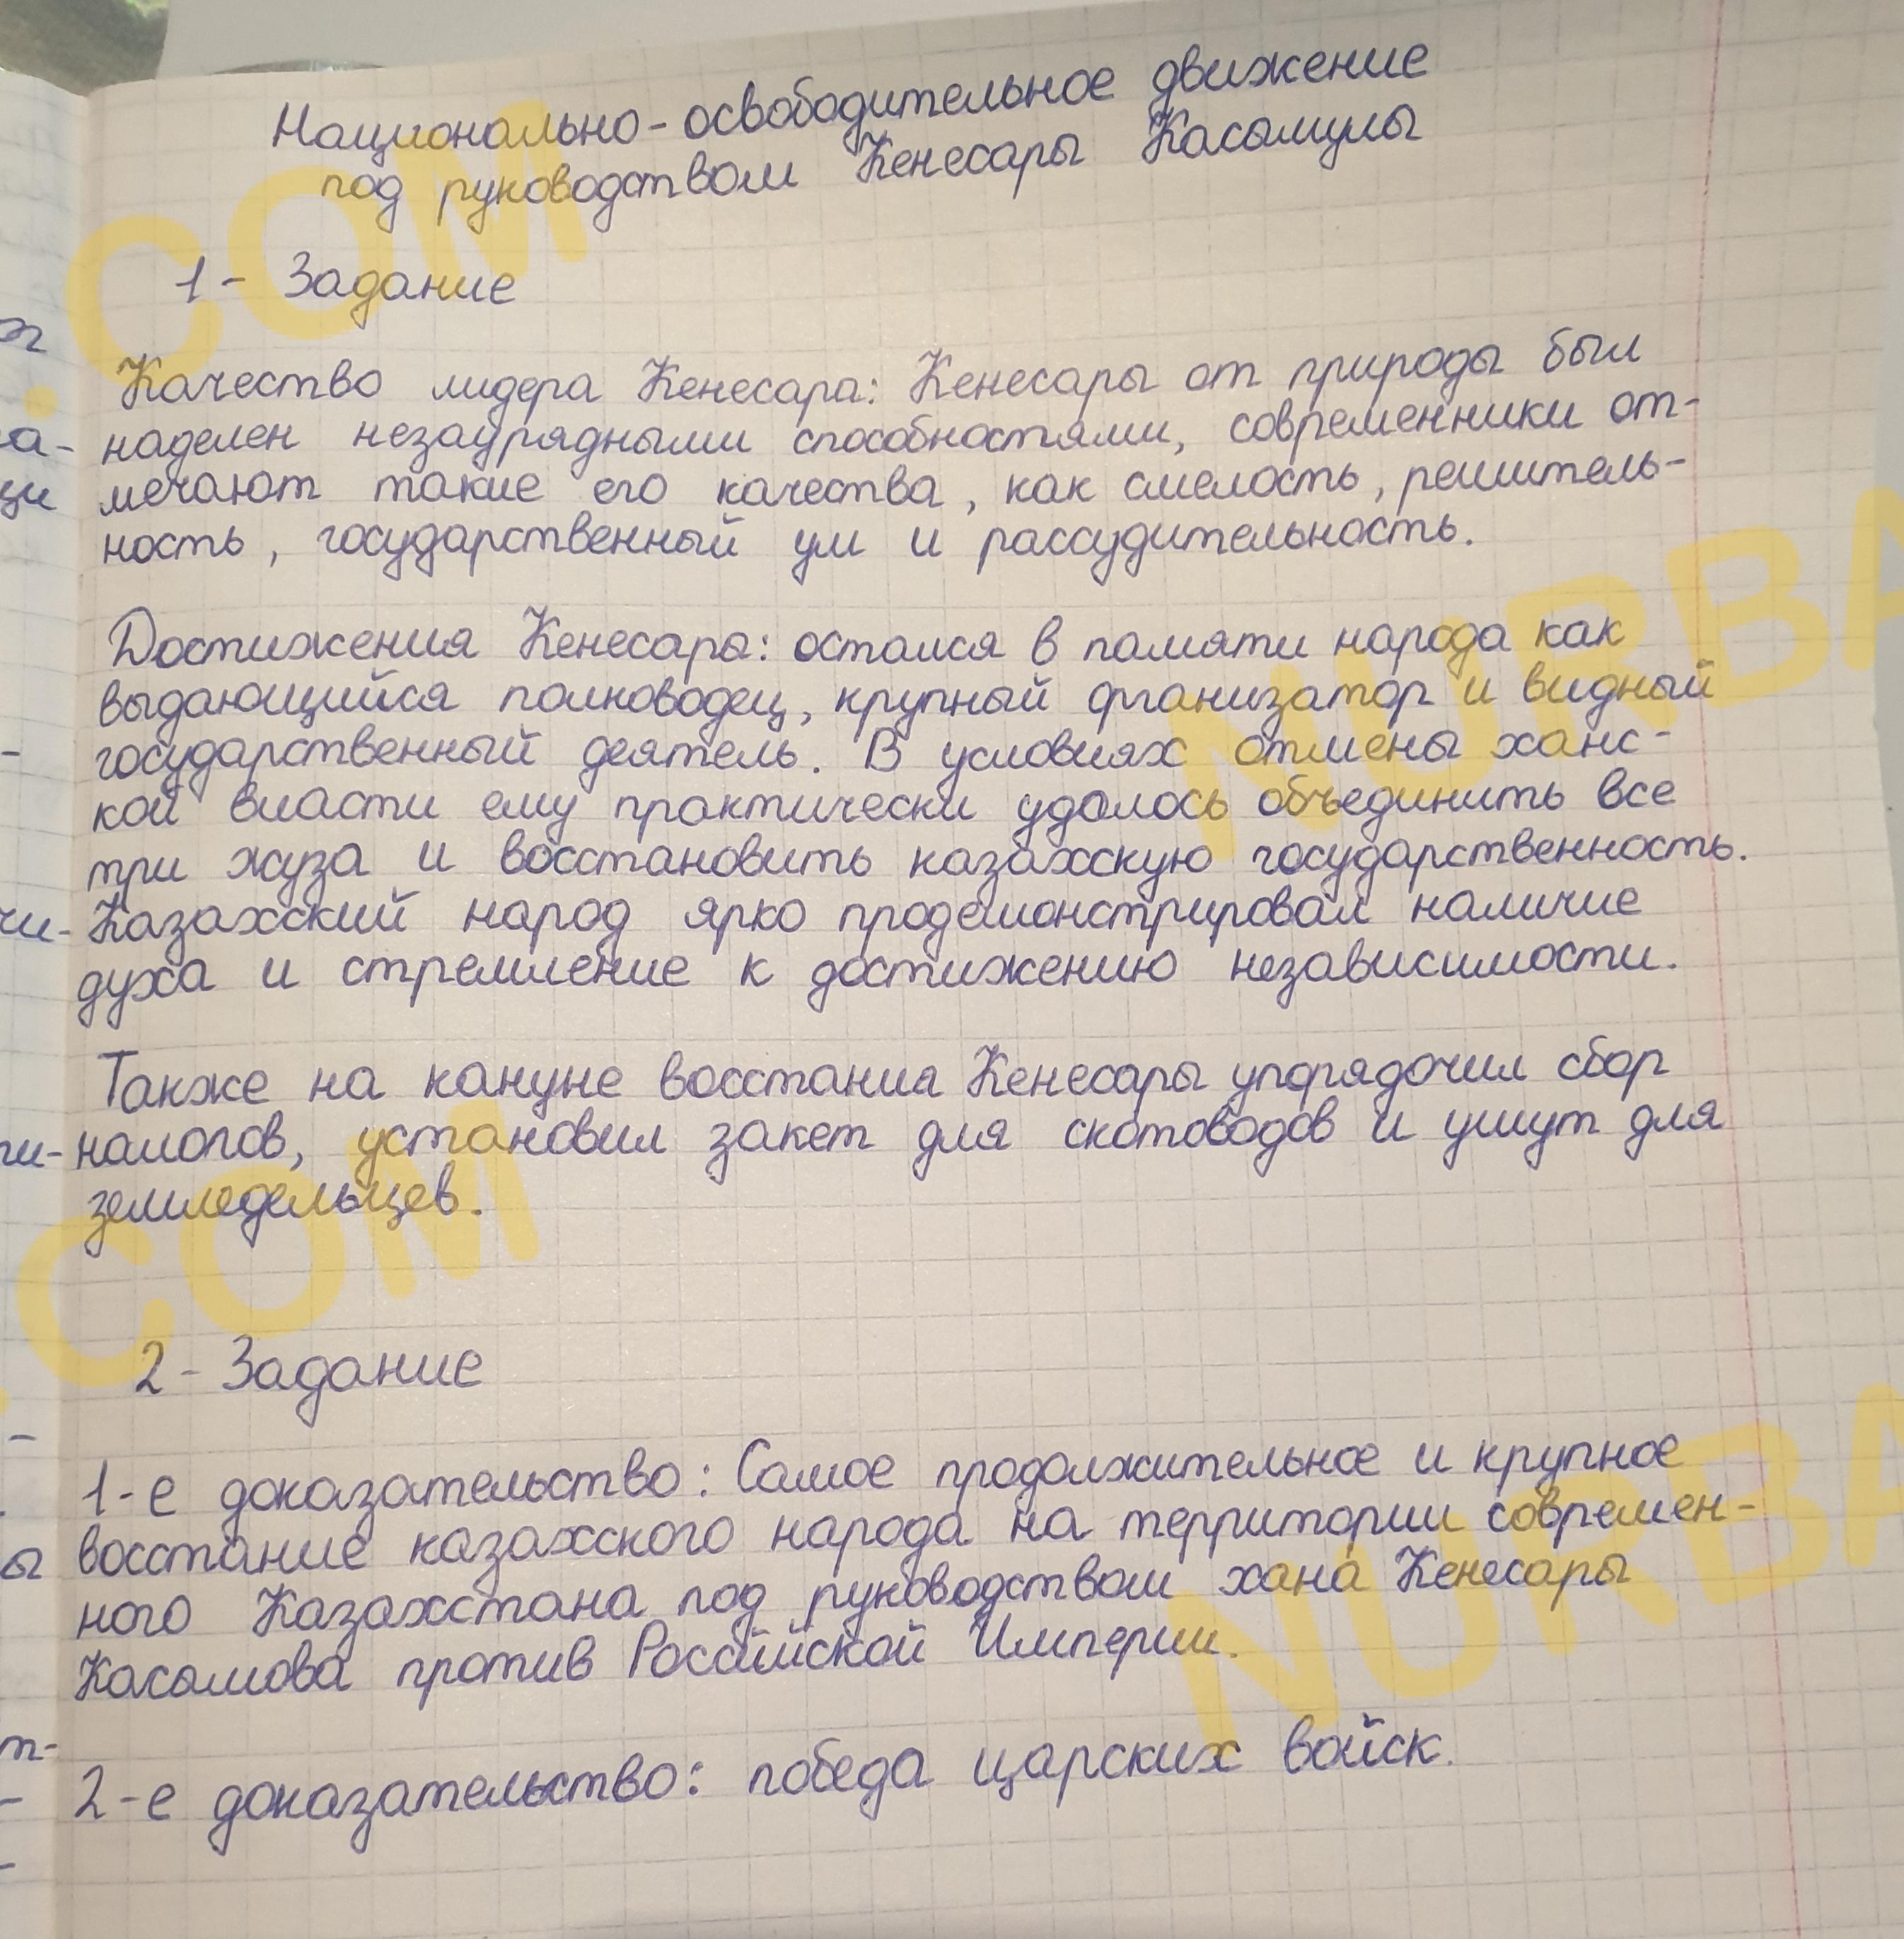 Национально-освободительное движение
под руководством Кенесары Касымулы
1- Задание
Качество лидера Кенесара: Кенесары от природы был
наделен незаурядными способностями, современники от-
мечают такие его качества, как смелость, решитель-
ность, государственный ум и рассудительность.
Достижения Кенесара: остался в памяти народа как
выдающийся полководец, крупный организатор и видный
государственный деятель. В условиях отмены ханс-
кой власти ему практически удалось объединить все
три жуза и восстановить казахскую государственность.
Казахский народ ярко продемонстрировал наличие
духа и стремление к достижению независимости.
Также на кануне восстания Кенесары упорядочил сбор
налогов, установил закет для скотоводов и ушут для
земледельцев.
2- Задание
1-е доказательство: Самое продолжительное и крупное
восстание казахского народа на территории современ-
ного Казахстана под руководством хана Кенесары
Касымова против Российской Империи.
2-е доказательство: победа царских войск.
.COM
NURBA
.COM
NURBA